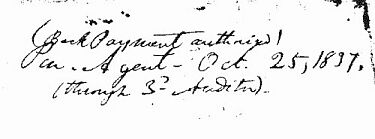 (Back Payment authrized
on Agent - Oct. 25, 1837.
(through 3d Auditor).